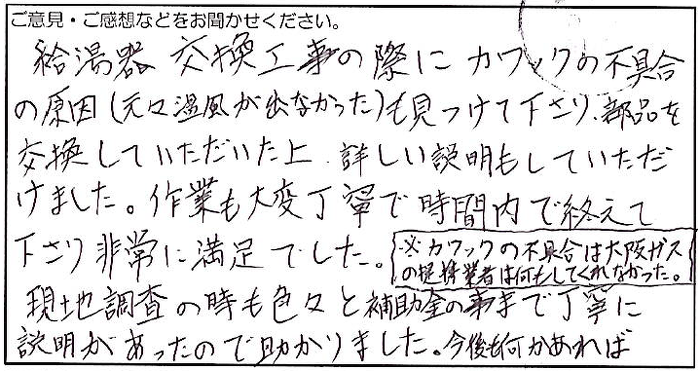 ご意見・ご感想などをお聞かせください。
給湯器 交換工事の際に カワックの不具合
の原因(元々温風が出なかった)も見つけて下さり、部品を
交換していただいた上、詳しい説明もしていただ
けました。作業も大変丁寧で時間内で終えて
下さり非常に満足でした。
※カワックの不具合は大阪ガス
の提携業者は何もしてくれなかった。
現地調査の時も色々と補助金の事まで丁寧に
説明があったので助かりました。今後も何かあれば